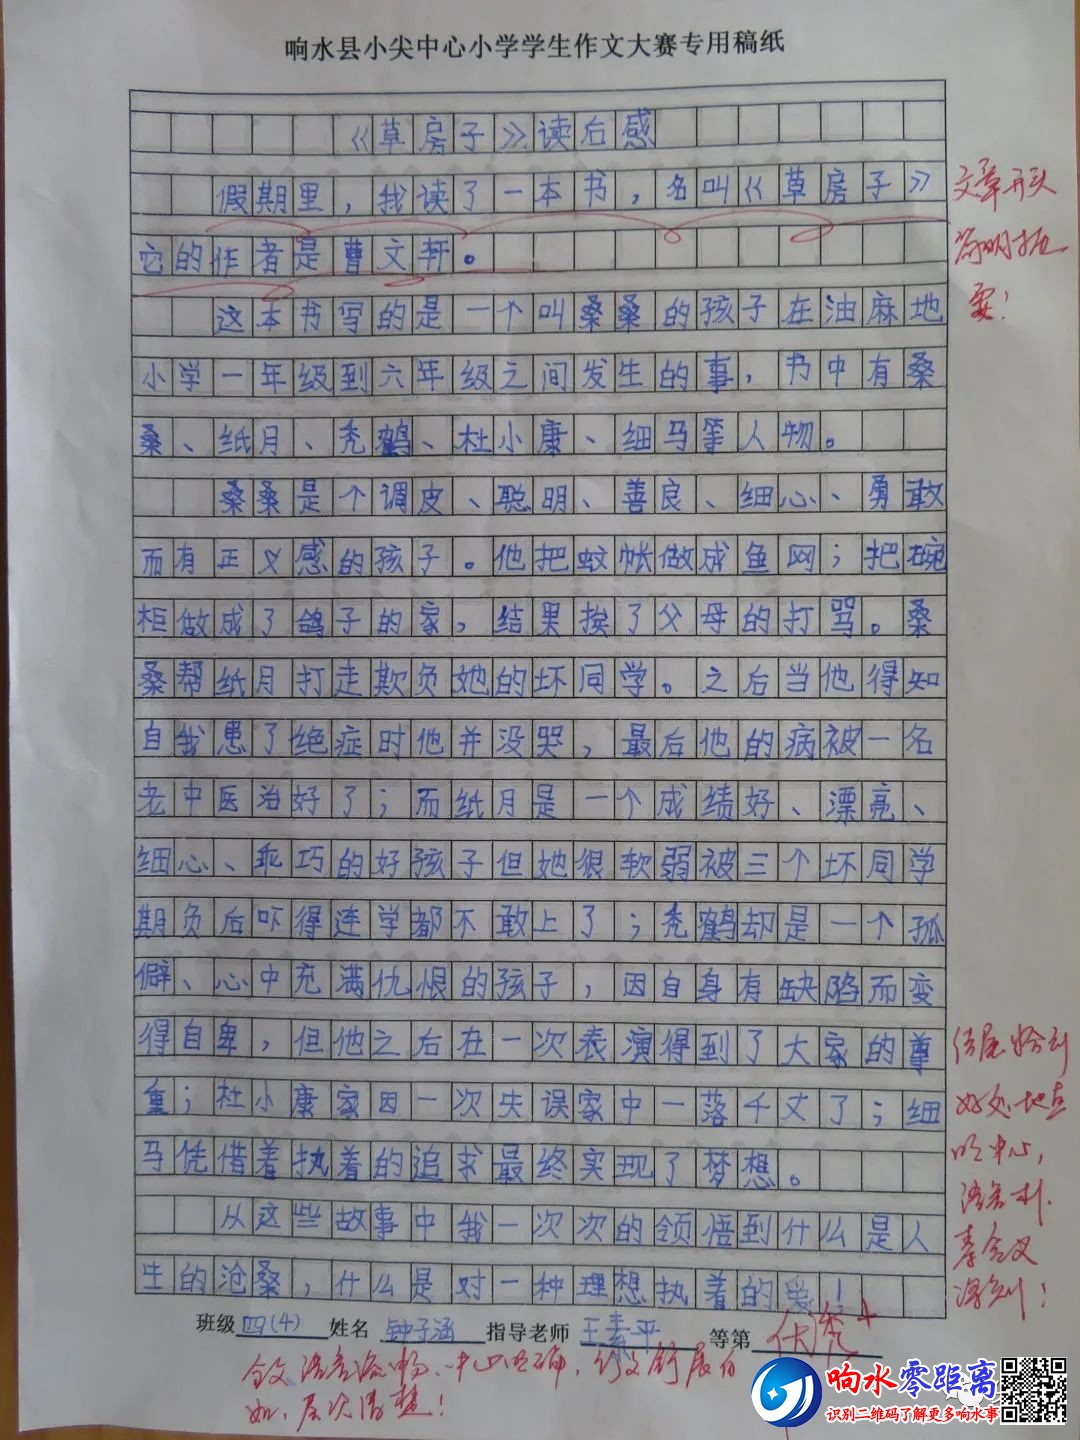 响水县小尖中心小学学生作文大赛专用稿纸
《草房子》读后感
假期里，我读了一本书，名叫《草房子》
它的作者是曹文轩。
这本书写的是一个叫桑桑的孩子在油麻地
小学一年级到六年级之间发生的事，书中有桑
桑、纸月、秃鹤、杜小康、细马等人物。
桑桑是个调皮、聪明、善良、细心、勇敢
而有正义感的孩子。他把蚊帐做成鱼网；把碗
柜做成了鸽子的家，结果挨了父母的打骂。桑
桑帮纸月打走欺负她的坏同学。之后当他得知
自我患了绝症时他并没哭，最后他的病被一名
老中医治好了；而纸月是一个成绩好、漂亮、
细心、乖巧的好孩子但她很软弱被三个坏同学
期负后吓得连学都不敢上了；秃鹤却是一个孤
僻、心中充满仇恨的孩子，因自身有缺陷而变
得自卑，但他之后在一次表演得到了大家的尊
重；杜小康家因一次失误家中一落千丈了；细
马凭借着执着的追求最终实现了梦想。
从这些故事中我一次次的领悟到什么是人
生的沧桑，什么是对一种理想执着的爱！
文章开头
简明扼
要！
结尾恰到
好处地点
明中心，
语言朴
素含义
深刻！
班级 四(4) 姓名 钟子涵 指导老师 王素平 等第 优秀+
全文语言流畅，中心明确，行文舒展自
如，层次清楚！
响水零距离
识别二维码了解更多响水事